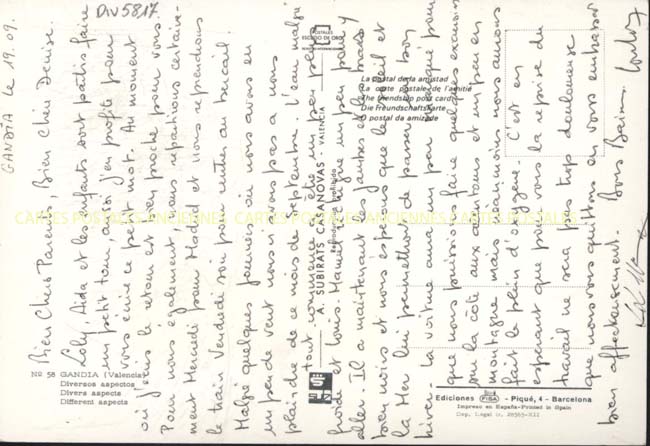 DIV5817
GANDÍA le 19.09.
Bien Chers Parents, Bien Chère Denise.
Loly, Aida et les enfants sont partis faire
un petit tour aussi j'en profite pour
vous écrire ce petit mot. Au moment
où j'écris le retour est bien proche pour vous.
Pour nous également, nous repartirons certaine-
ment Mercredi pour Madrid et nous reprendrons
le train Vendredi soir pour rentrer au bercail.
Malgré quelques journées où nous avons eu
un peu de vent nous n'avons pas à nous
plaindre de ce mois de septembre. L'eau malgré
tout commence à être un peu plus
froide et Louis-Manuel rechigne un peu pour y
aller. Il a maintenant les jambes et les bras
bien noirs et nous espérons que le soleil et
la Mer lui permettront de passer un bon
hiver. La voiture aura un peu manqué pour
que nous puissions faire quelques excursions
sur la côte aux alentours et un peu en
montagne mais néanmoins nous aurons
fait le plein d'oxygène. C'est en
espérant que pour vous la reprise du
travail ne sera pas trop douloureuse
que nous vous quittons en vous embrassant
bien affectueusement. Bons Baisers.
POSTALES
ESCUDO DE ORO
A. SUBIRATS CASANOVAS - VALENCIA
La postal de la amistad
La carte postale de l'amitié
The friendship post card
Die Freundschaftskarte
O postal da amizade
CARTES POSTALES ANCIENNES CARTES POSTALES ANCIENNES CARTES POSTALES
Nº 58 GANDIA (Valencia)
Diversos aspectos
Divers aspects
Different aspects
Ediciones FISA - Piqué, 4 - Barcelona
Impreso en España-Printed in Spain
Dep. Legal B. 28563-XII